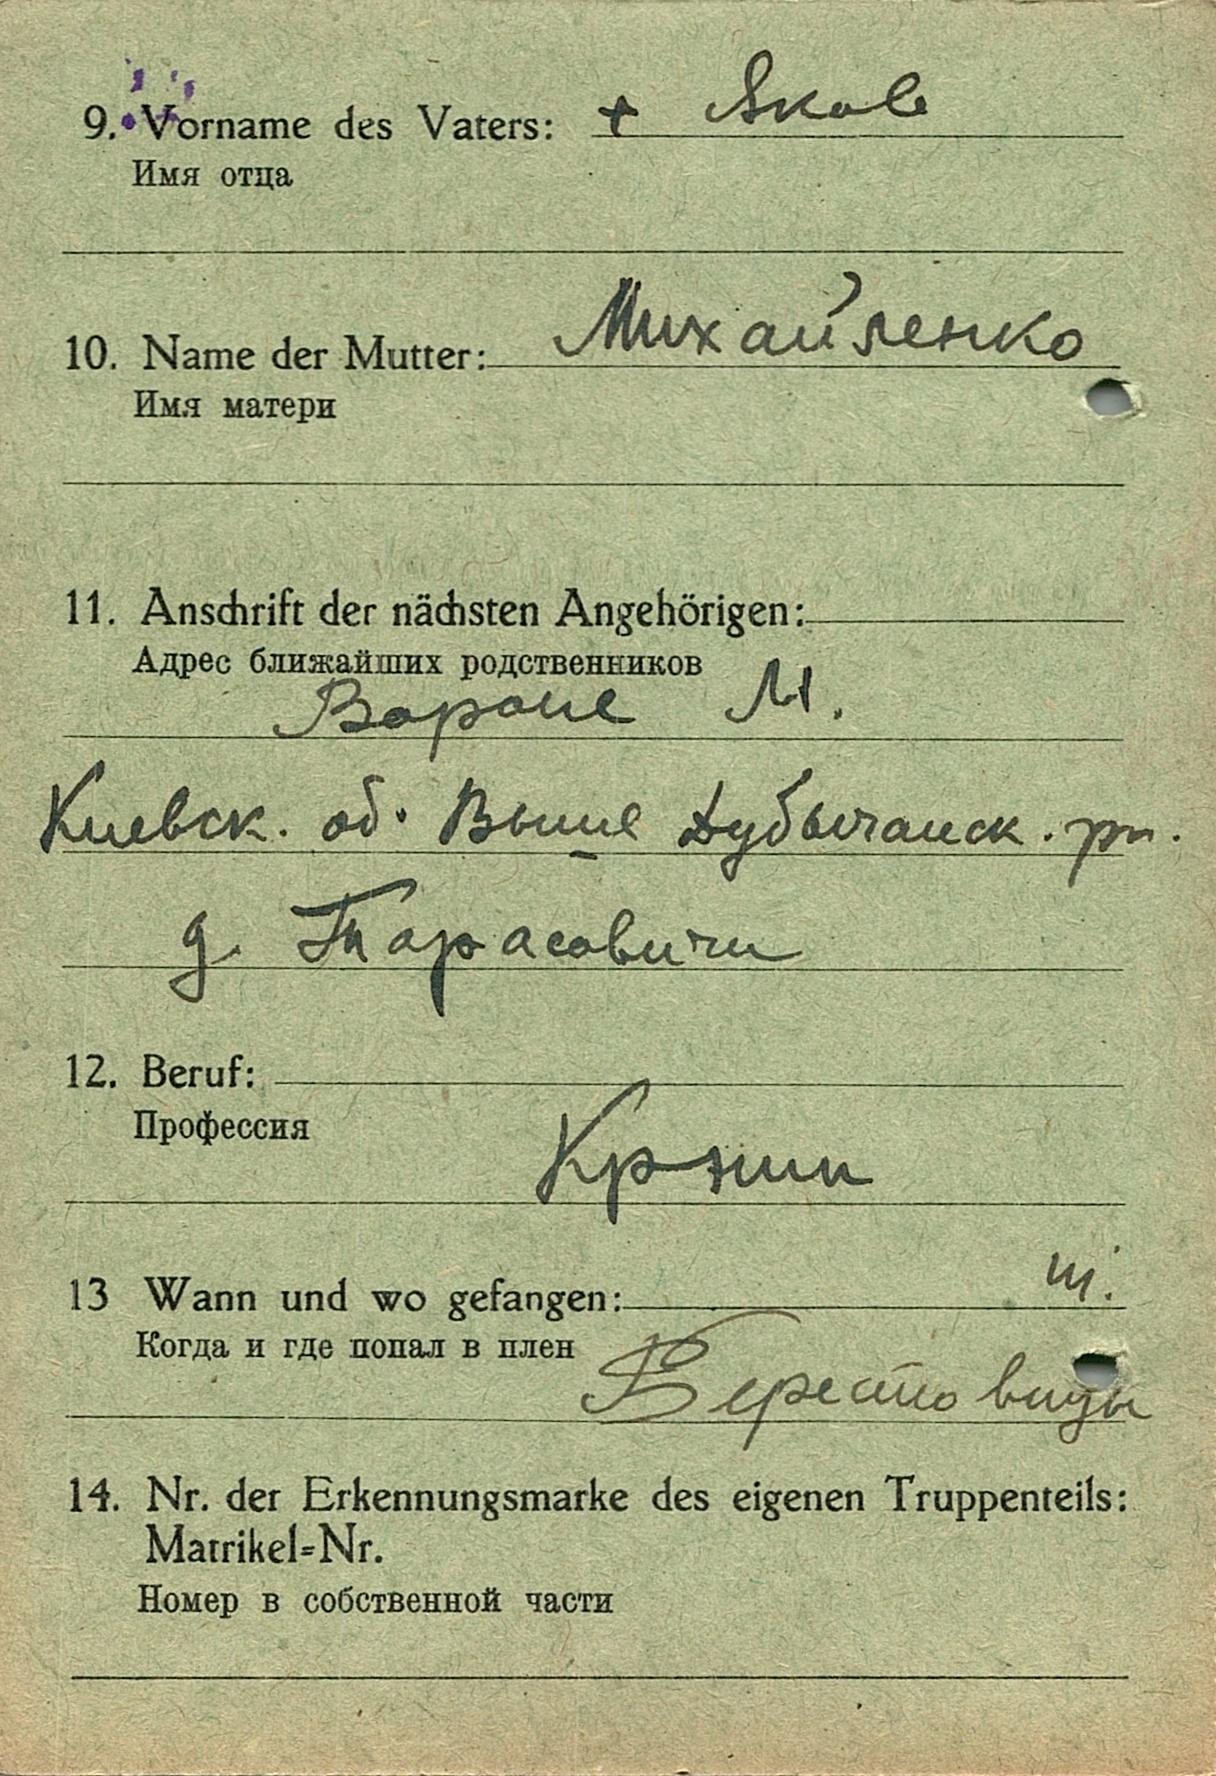 9. Vorname des Vaters: + Яков
Имя отца
10. Name der Mutter: Михайленко
Имя матери
11. Anschrift der nächsten Angehörigen:
Адрес ближайших родственников
М.
Киевск. об. Выше Дубычанск. рн.
д. Тарасовичи
12. Beruf:
Профессия
13 Wann und wo gefangen:
Когда и где попал в плен
Берестовицы
14. Nr. der Erkennungsmarke des eigenen Truppenteils:
Matrikel=Nr.
Номер в собственной части